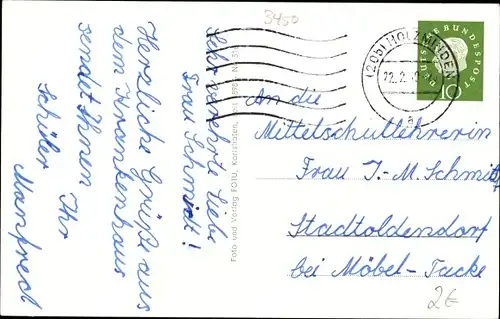 3450
Sehr verehrte liebe
Frau Schmidt!
Herzliche Grüße aus
dem Krankenhaus
sendet Ihnen Ihr
Schüler
Manfred
Foto und Verlag FOTU,
DEUTSCHE BUNDESPOST
10
(20b) HOLZMINDEN
22.2.
a
An die
Mittelschullehrerin
Frau J.-M. Schmitz
Stadtoldendorf
bei Möbel-Tacke
2€